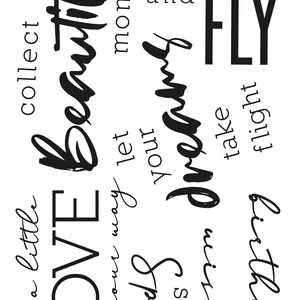 collect
Beautiful
mom
and
FLY
let
your
dreams
take
flight
a little
OVE
your way
wis
birth